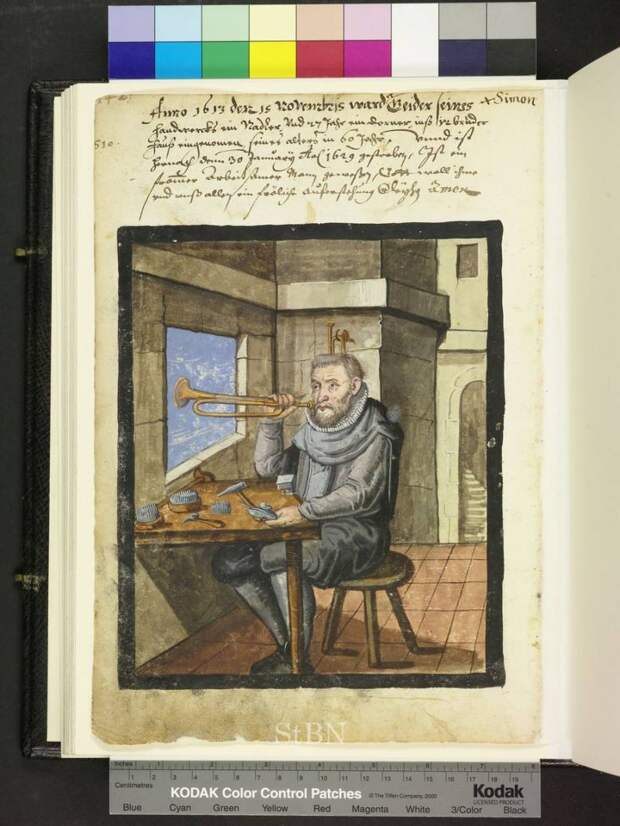 Simon
Anno 1613 den 15 Novembris ward seines
Handwercks ein Nadler, Und 27 Jahr ein inß 12 bruder
510.
Hauß eingenomen seines alters in 60 Jahr, unnd ist
hernach denn 30 Januarÿ 1629 gestorben, Ist ein
fromer Arbeitsamer Mann gewesen, Gott woll ihme
und unß allen ein fröliche Aufferstehung Amen
StBN
Inches 1 2 3 4 5 6 7 8
Centimetres 1 2 3 4 5 6 7 8 9 10 11 12 13 14 15 16 17 18 19
KODAK Color Control Patches © The Tiffen Company, 2000 Kodak
LICENSED PRODUCT
Blue Cyan Green Yellow Red Magenta White 3/Color Black